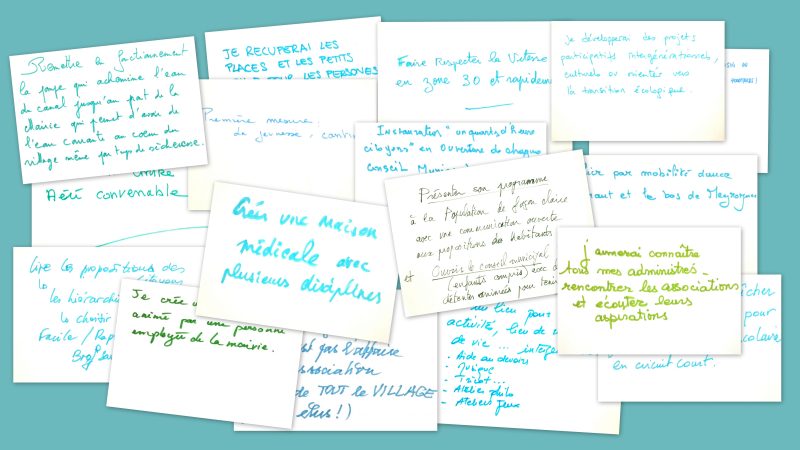 Remettre le fonctionnement
la pompe qui achemine l'eau
du canal jusqu'au puit de la
Mairie qui permet d'avoir de
l'eau courante au coeur du
village même par temps de sécheresse.
JE RECUPERAI LES
PLACES ET LES PETITS
LES PERSONES
Faire Respecter la Vitesse
en zone 30 et rapidem
Je développerai des projets
participatifs intergénérationnels,
culturels ou orientés vers
la transition écologique.
Première mesure
de jeunesse, cantin
Instauration "un quart d'heure
citoyens" en Ouverture de chaque
Conseil Munici
par mobilité douce
haut et le bas de Meyrargues
Aéré convenable
Créer une maison
médicale avec
plusieurs disciplines
Présenter son programme
à la Population de façon claire
avec une communication ouverte
aux propositions des habitants
et Ouvrir le conseil municipal
(enfants compris) avec d
détentes animées pour
J'aimerai connaître
tous mes administrés -
rencontrer les associations
et écouter leurs
aspirations
Lire les propositions des
citoyens
les hiérarchi
la choisir
Facile / Rap
Je crée u
animé par une personne
employée de la mairie.
pas l'affaire
association
de TOUT le VILLAGE
élus !)
lieu pour
activité, lieu de
de vie ... interge
- Aide au devoirs
- Musique
- Tricot ...
- Atelier philo
- Ateliers Jeux
pour
scolaire
en circuit court.